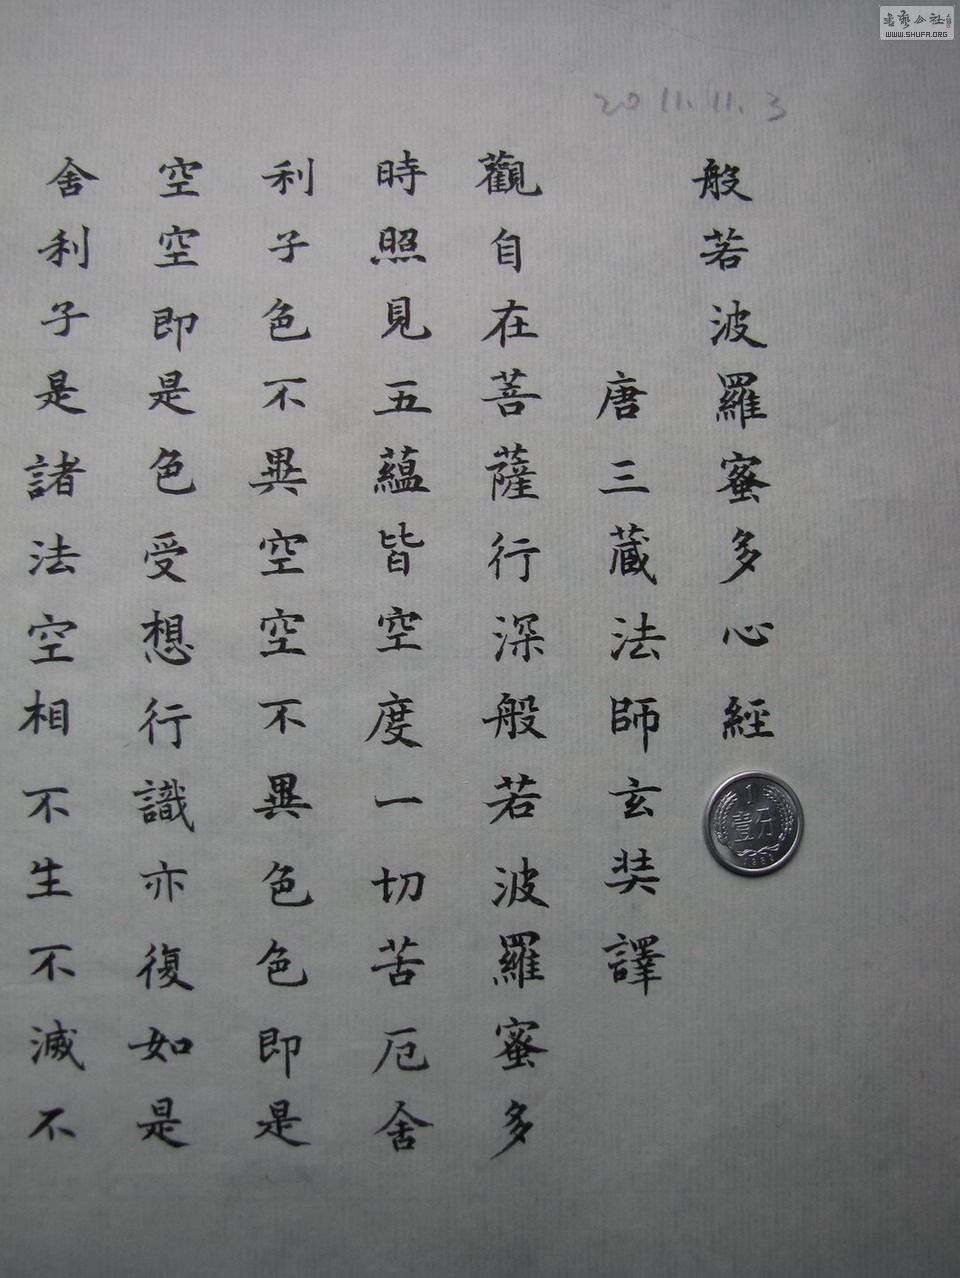 書藝公社
WWW.SHUFA.ORG
2011.11.3
般若波羅蜜多心經
唐三藏法師玄奘譯
觀自在菩薩行深般若波羅蜜多
時照見五蘊皆空度一切苦厄舍
利子色不異空空不異色色即是
空空即是色受想行識亦復如是
舍利子是諸法空相不生不滅不
1
壹分